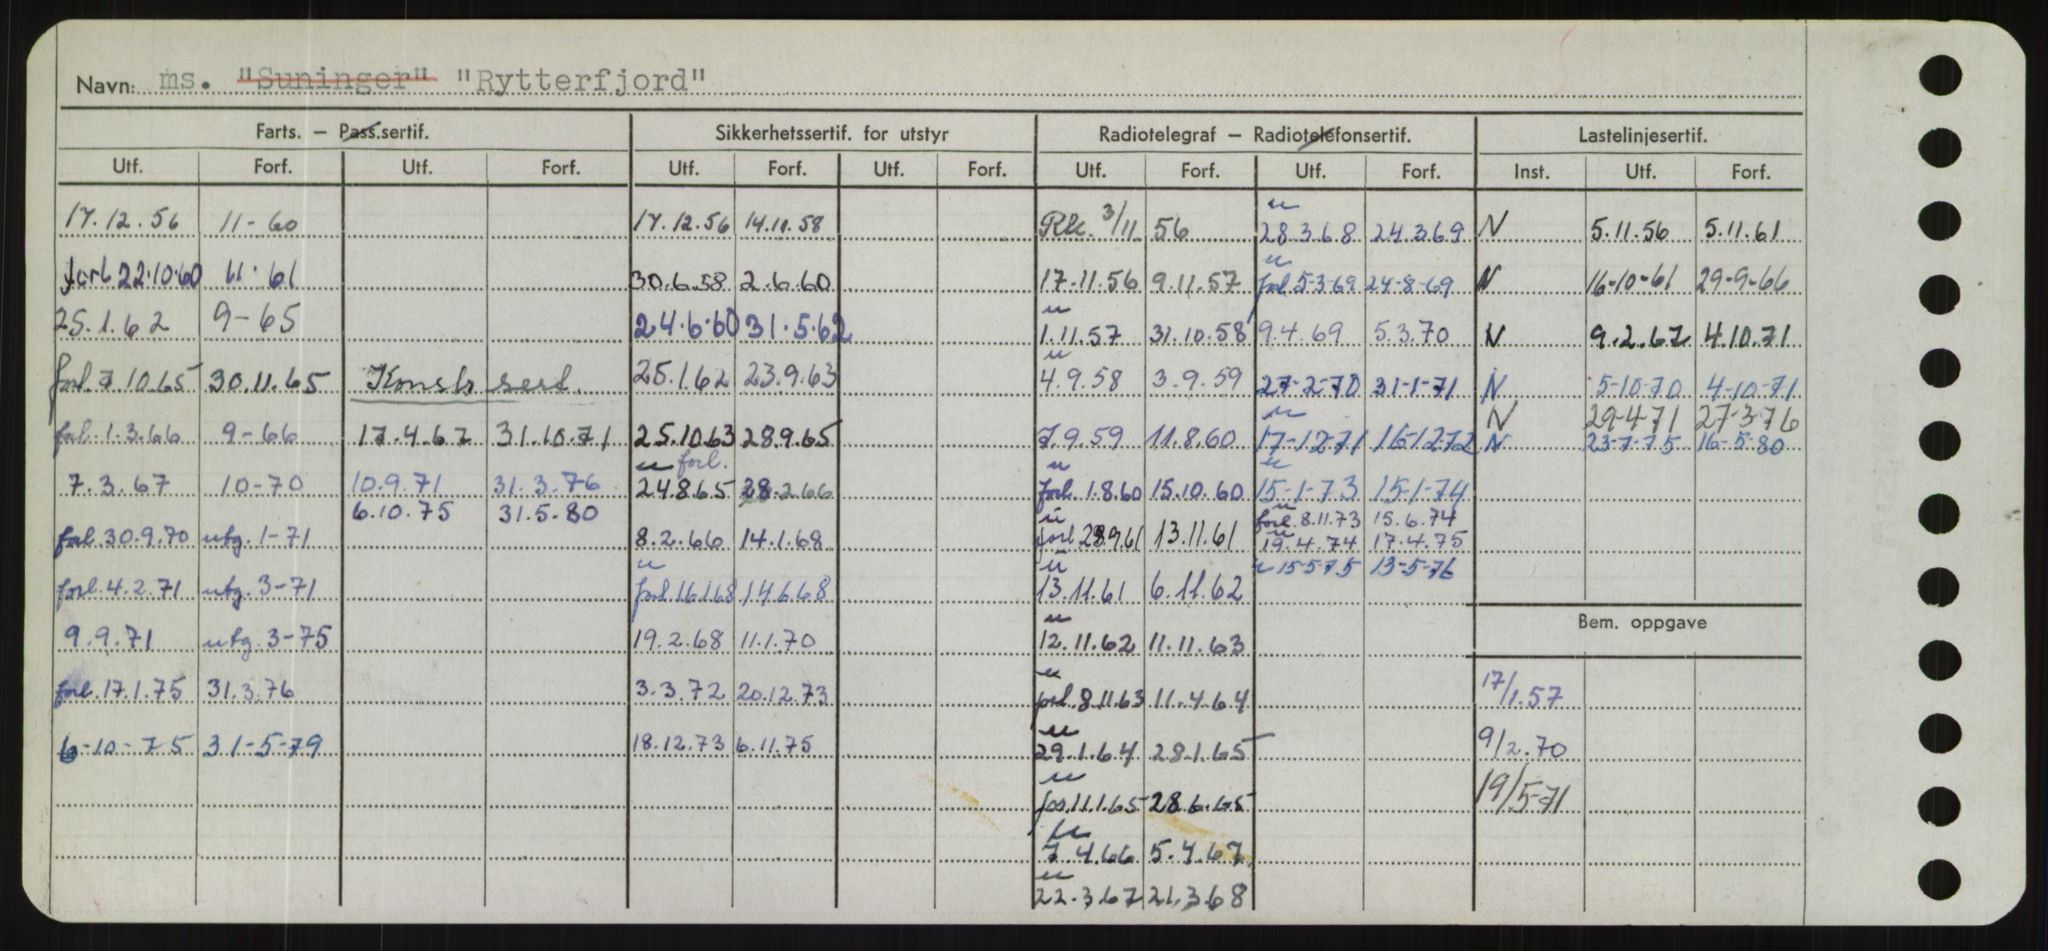 Navn: ms. "Suninger" "Rytterfjord"
Farts. — Pass.sertif. Sikkerhetssertif. for utstyr Radiotelegraf — Radiotelefonsertif. Lastelinjesertif.
Utf. Forf. Utf. Forf. Utf. Forf. Utf. Forf. Utf. Forf. Utf. Forf. Inst. Utf. Forf.
u
17.12.56 11-60 17.12.56 14.11.58 3/11 56 28.3.68 24.3.69 N 5.11.56 5.11.61
u
forl 22.10.60 11.61 30.6.58 2.6.60 17.11.56 9.11.57 forl 5-3-69 24-8-69 N 16-10-61 29-9-66
u
25.1.62 9-65 24.6.60 31.5.62 1.11.57 31.10.58 9.4.69 5.3.70 N 9.2.67 4.10.71
u
forl. 7.10.65 30.11.65 Konstr sert. 25.1.62 23.9.63 4.9.58 3.9.59 27-2-70 31-1-71 N 5-10-70 4-10-71
u N 29-4-71 27-3-76
forl. 1.3.66 9-66 17.4.67 31.10.71 25.10.63 28.9.65 7.9.59 11.8.60 17-12-71 16-12-72 N 23-7-75 16-5-80
u forl. u u
7.3.67 10-70 10.9.71 31.3.76 24.8.65 28.2.66 forl. 1.8.60 15.10.60 15-1-73 15-1-74
6.10.75 31.5.80 u u forl. 8.11.73 15.6.74
forl. 30.9.70 utg. 1-71 8.2.66 14.1.68 forl 28.9.61 13.11.61 19.4.74 17.4.75
u u u 15-5-75 13-5-76
forl. 4.2.71 utg. 3-71 forl 16.1.68 14.6.68 13.11.61 6.11.62
Bem. oppgave
u
9.9.71 utg. 3-75 19.2.68 11.1.70 12.11.62 11.11.63
u
forl. 17.1.75 31.3.76 3.3.72 20.12.73 forl. 8.11.63 11.4.64 17/1.57
u
6-10-75 31-5-79 18.12.73 6.11.75 29.1.64 28.1.65 9/2.70
u
for. 11.1.65 28.6.65 19/5-71
u
7.4.66 5.4.67
u
22.3.67 21.3.68